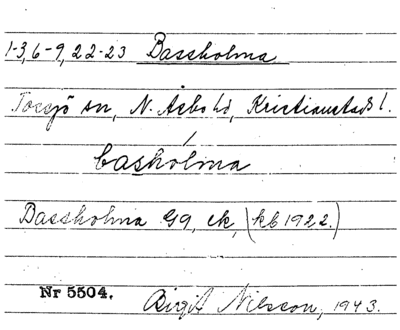 1-3, 6-9, 22-23 Bassholma
Tossjö sn, N. Åsbo hd, Kristianstads l.
basholma
Bassholma G9, ek, (kb 1922.)
Nr 5504. Birgit Nilsson, 1943.